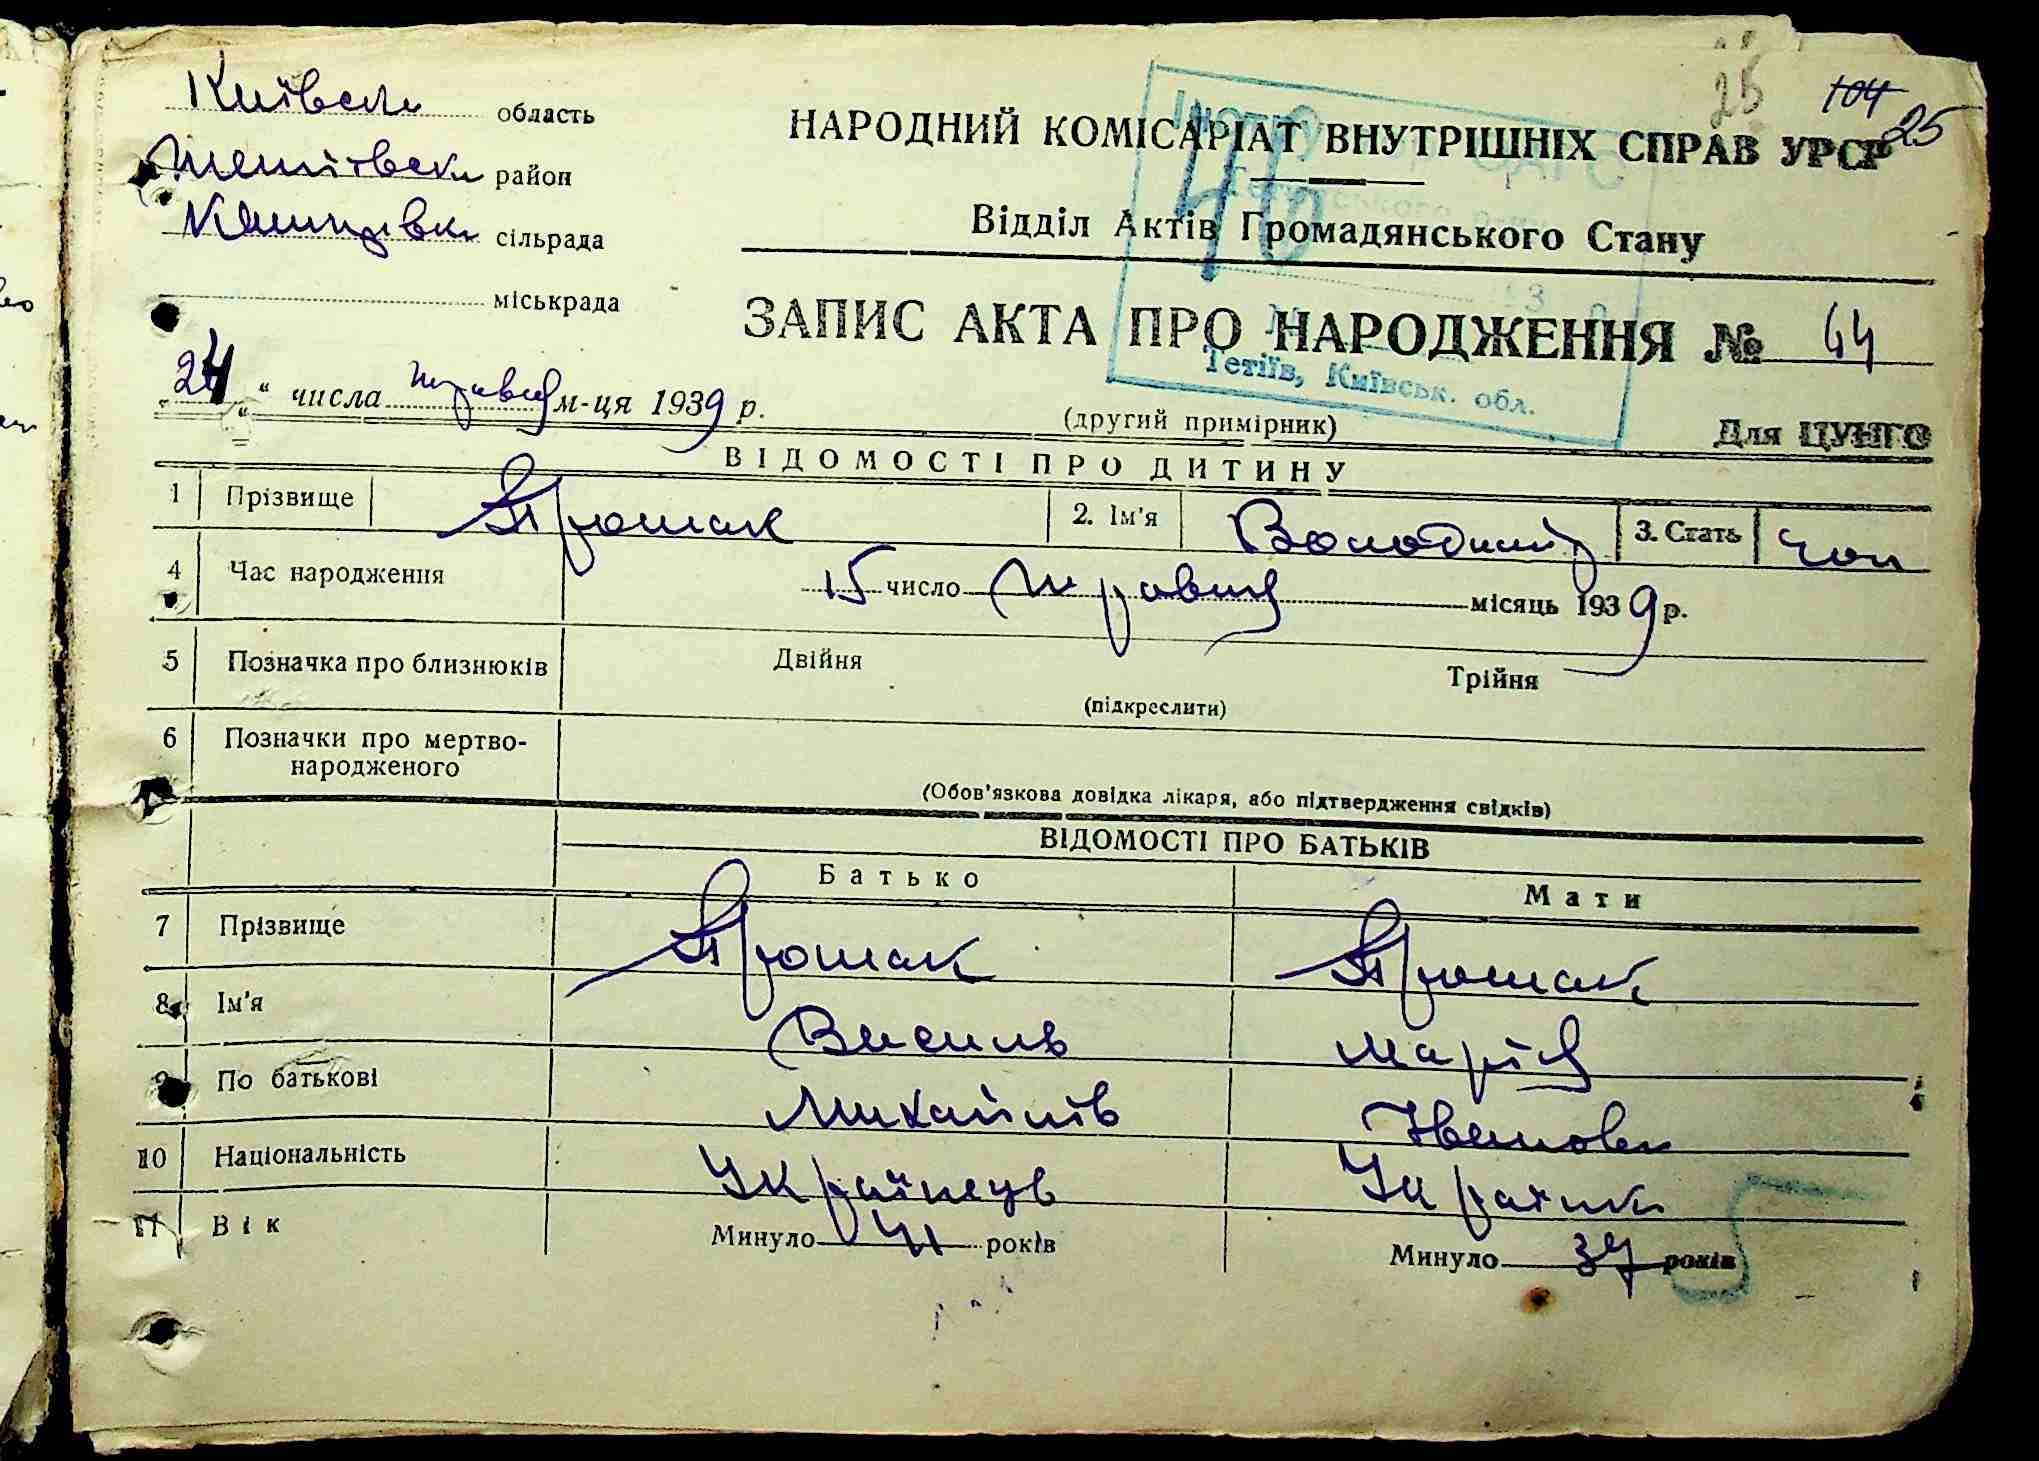 25 104 25
Київська область
Тетіївськ район
сільрада
міськрада
НАРОДНИЙ КОМІСАРІАТ ВНУТРІШНІХ СПРАВ УРСР
Відділ Актів Громадянського Стану
ЗАПИС АКТА ПРО НАРОДЖЕННЯ № 44
Тетіїв, Київськ. обл.
„24“ числа травня м-ця 1939 р.
(другий примірник)
Для ЦУНГО
ВІДОМОСТІ ПРО ДИТИНУ
1 Прізвище Ярошак 2. Ім'я Володимир 3. Стать чол
4 Час народження 15 число травня місяць 1939 р.
5 Позначка про близнюків Двійня Трійня
(підкреслити)
6 Позначки про мертво-
народженого
(Обов'язкова довідка лікаря, або підтвердження свідків)
ВІДОМОСТІ ПРО БАТЬКІВ
Батько Мати
7 Прізвище Ярошак Ярошак
8 Ім'я Василь Марія
9 По батькові Михайлів Івановна
10 Національність Українець Українка
11 Вік Минуло 41 років Минуло 37 років